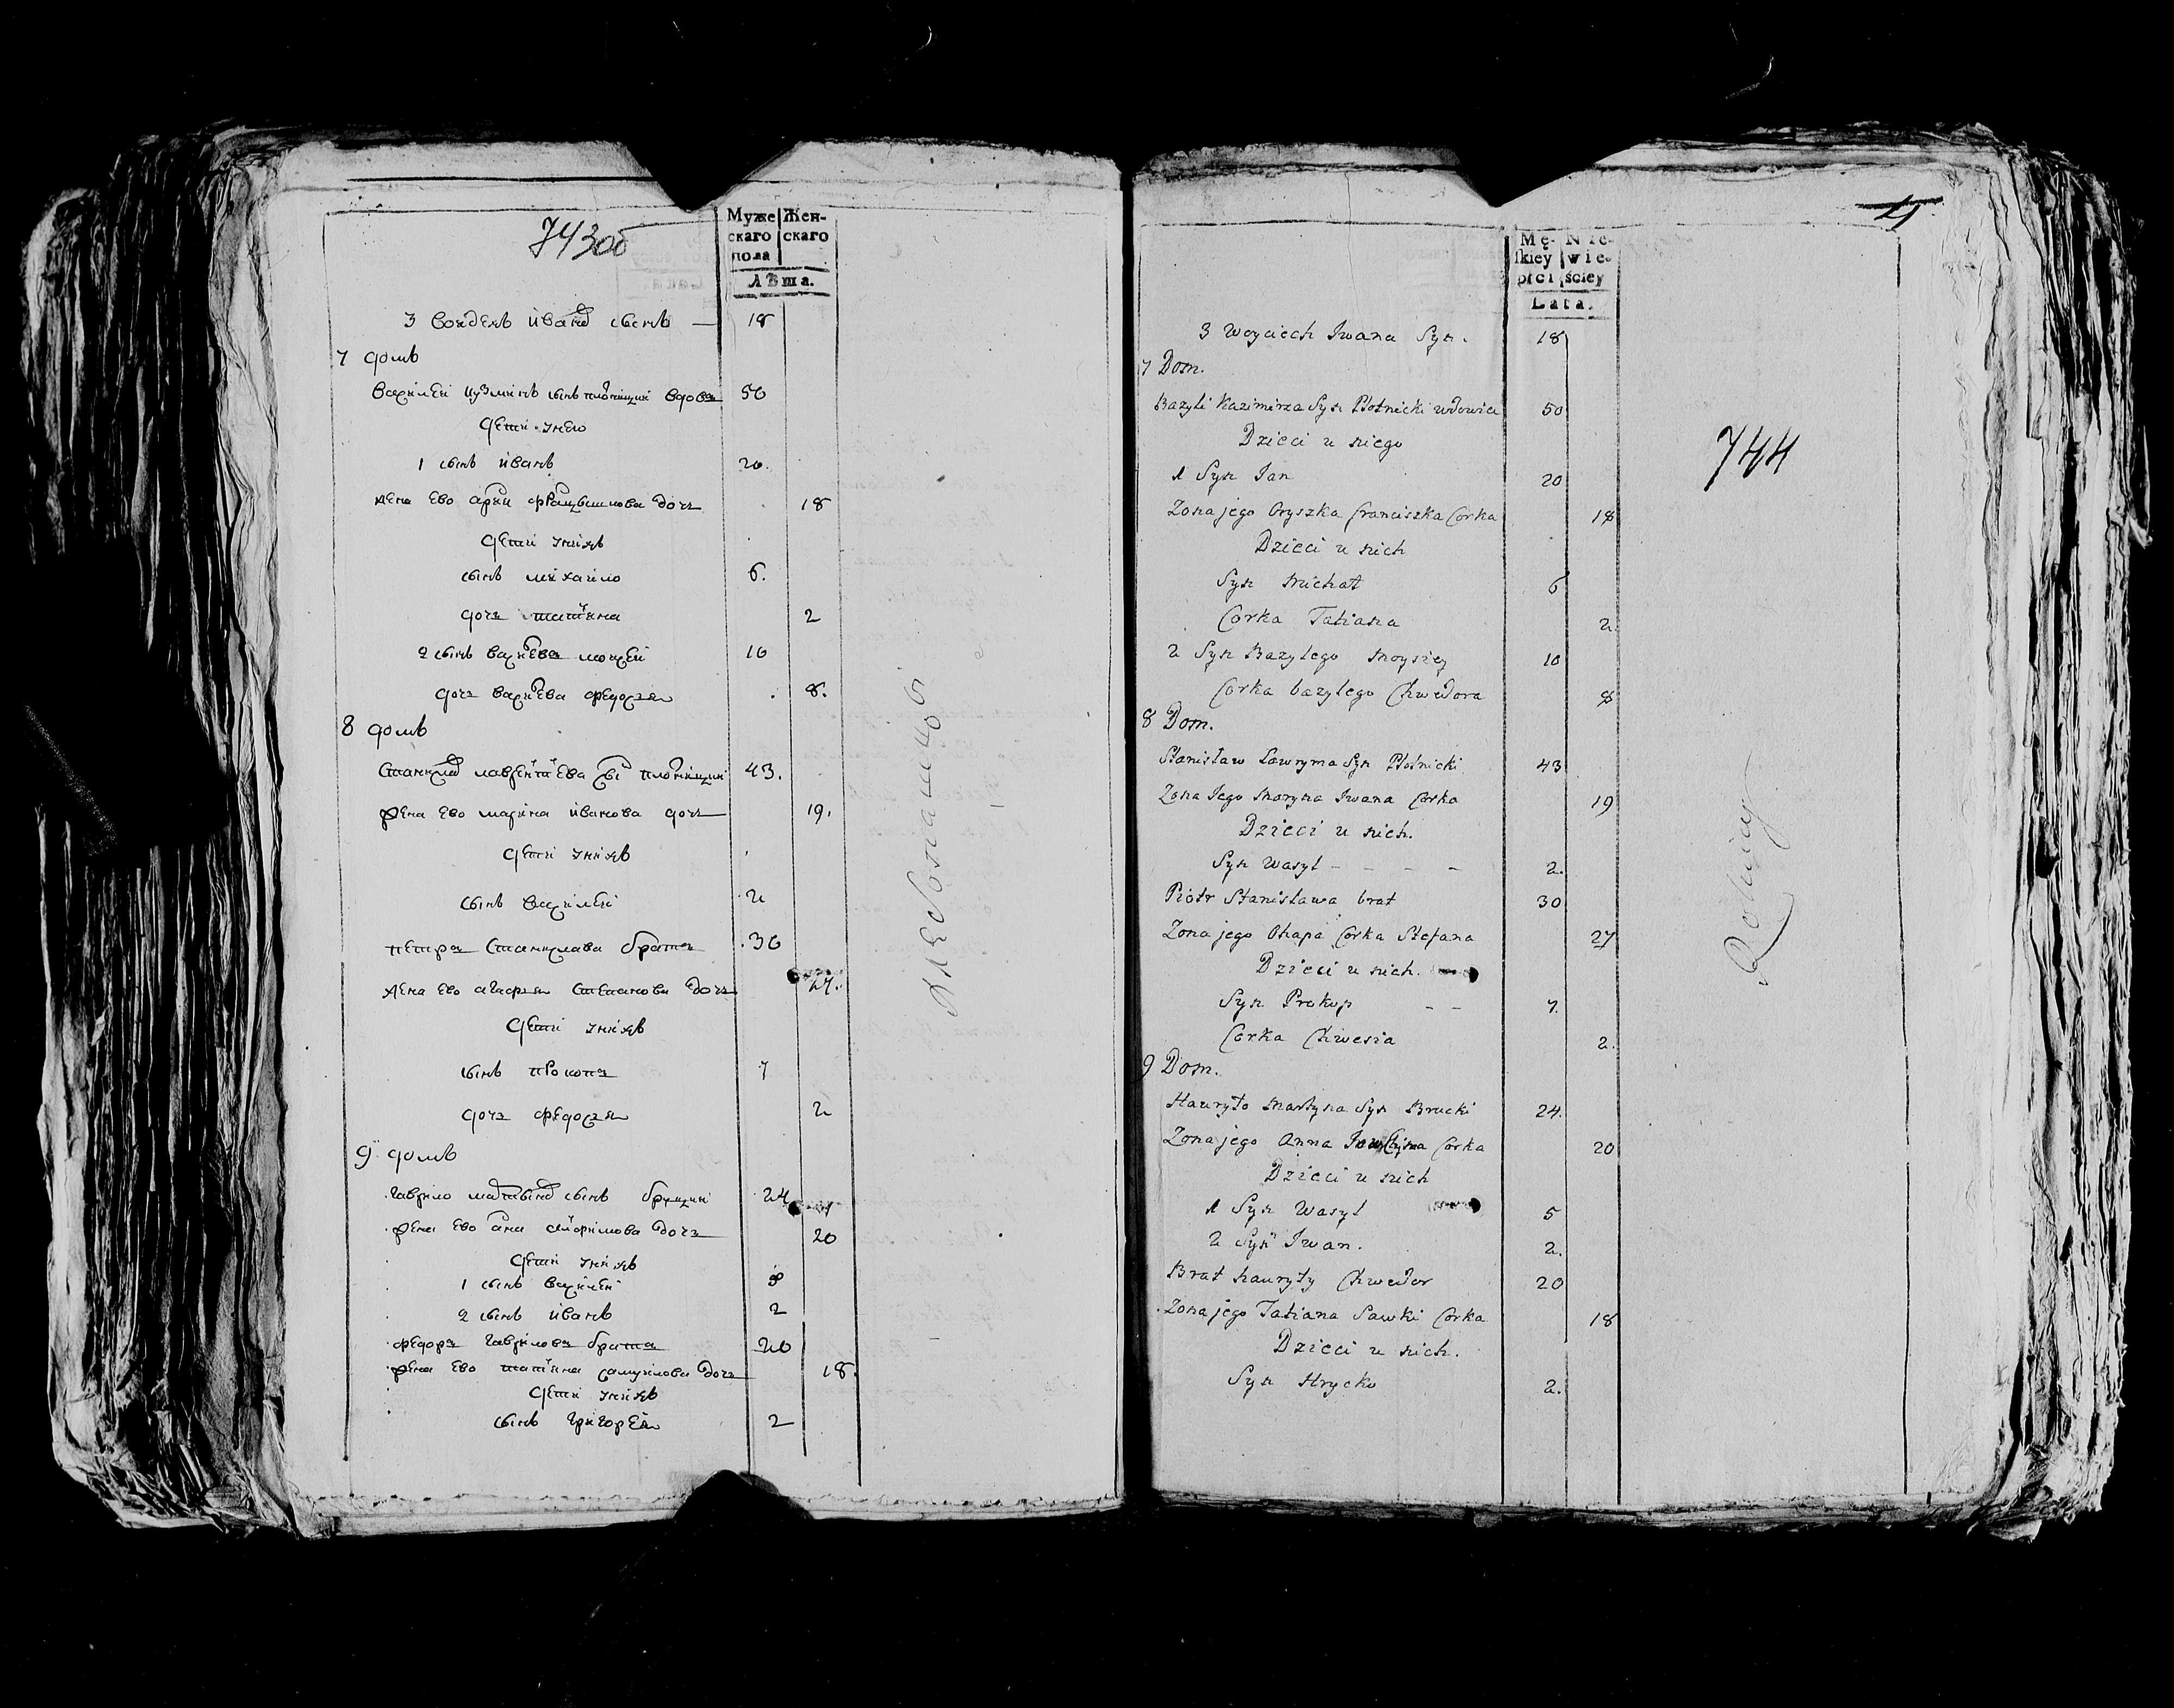 743об
Муже Жен-
скаго скаго
пола
Лѣта.
3 Войцехъ Иванъ сынъ — 18
7 домъ
Василей Кузминъ сынъ Плотницкий вдовъ 50
дети у него
1 сынъ Иванъ 20.
жена ево дочь 18
дети у нихъ
сынъ Михайло 6.
дочь Татьяна 2
2 сынъ Васильевъ Мойсей 10
дочь Васильева Федосья 8.
8 домъ
Станиславъ Лаврентьева сынъ Плотницкий 43.
жена ево Марина Иванова дочь 19.
дети у нихъ
сынъ Василей 2
Петръ Станислава братъ 30
жена ево Агафья Степанова дочь 27.
дети у нихъ
сынъ Прокопъ 7
дочь Федосья 2
9 домъ
Гаврило сынъ Бруцкий 24
жена ево Анна дочь 20
дети у нихъ
1 сынъ Василей
2 сынъ Иванъ 2
Федоръ Гаврилова братъ 20
жена ево Татьяна Самуилова дочь 18.
дети у нихъ
сынъ Григорей 2
Mę- Nie-
skiey wie-
płci ściey
Lata.
3 Woyciech Iwana Syn. 18
7 Dom.
Bazyli Kazimirza Syn Płotnicki wdowiec 50
Dzieci u niego
1 Syn Jan 20
Zona jego Oryszka Franciszka Corka 18
Dzieci u nich
Syn Michał 6
Corka Tatiana 2.
2 Syn Bazylego Moysiey 10
Corka bazylego Chwedora 8
8 Dom.
Stanisław Lawryma Syn Płotnicki 43
Zona Jego Maryna Iwana Corka 19
Dzieci u nich.
Syn Wasyl - - - - 2.
Piotr Stanisława brat 30
Zona jego Ohapa Corka Stefana 27
Dzieci u nich.
Syn Prokop - - 7.
Corka Chwesia 2.
9 Dom.
Hauryło Martyna Syn Brucki 24.
Zona jego Anna Corka 20
Dzieci u nich
1 Syn Wasyl 5
2 Syn Iwan. 2.
Brat hauryły Chwedor 20
Zona jego Tatiana Sawki Corka 18
Dzieci u nich.
Syn Hrycko 2.
744